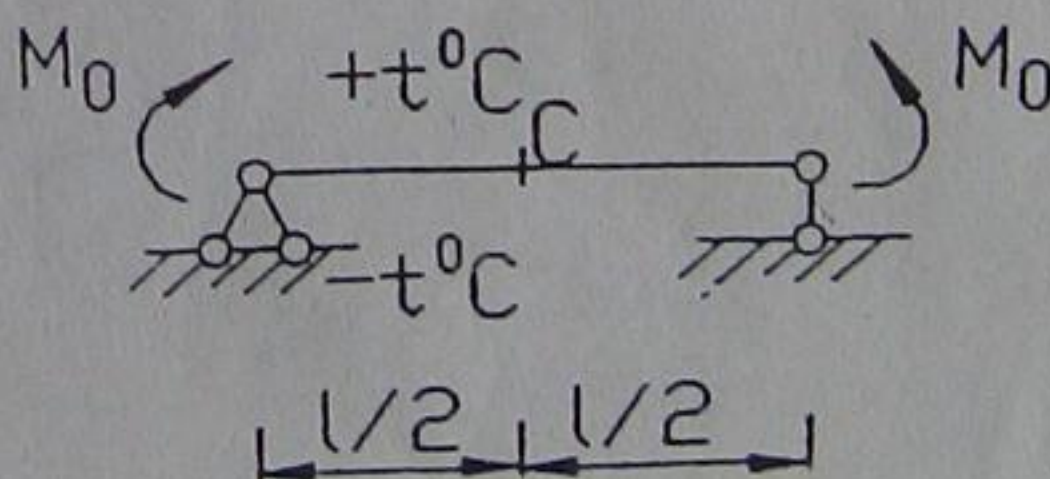 M₀ +t⁰C M₀
C
-t⁰C
l/2 l/2